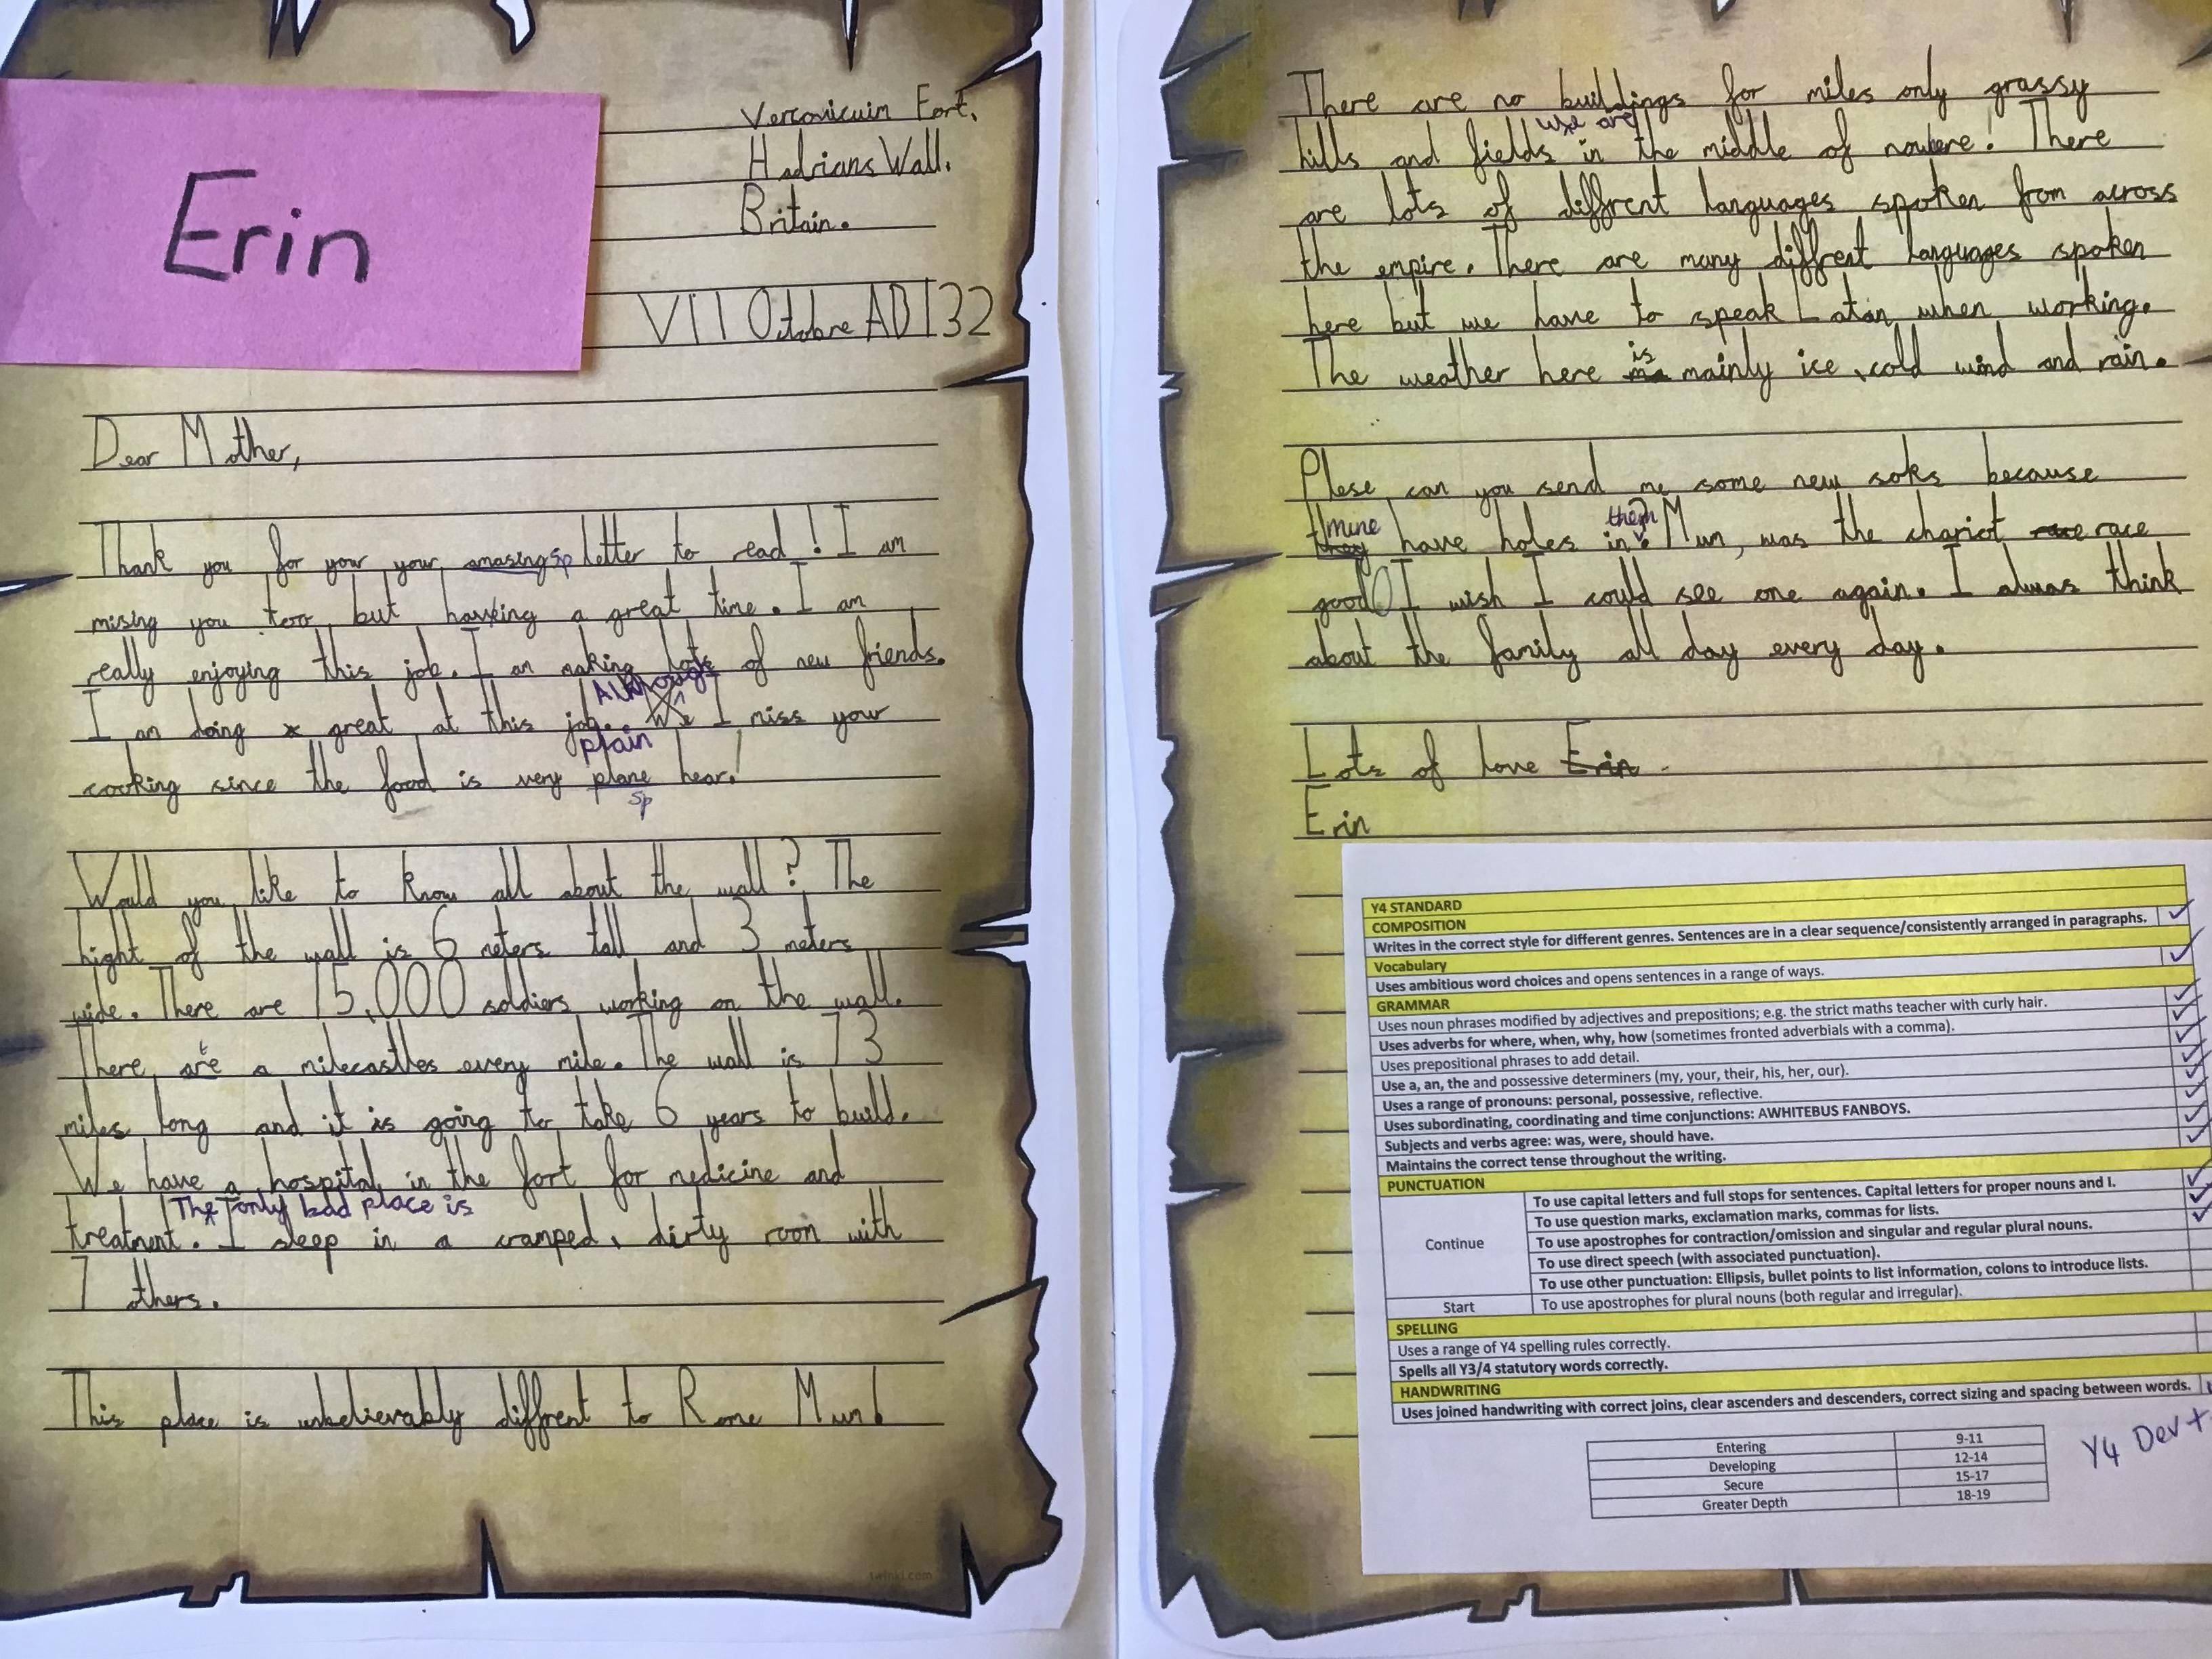 Erin
Vercovicuim Fort,
Hadrians Wall.
Britain.
VII Octobre AD 132
Dear Mother,
Thank you for your your amasing sp letter to read! I am
mising you too but having a great time. I am
really enjoying this job. I am making lots of new friends.
Although
I am doing great at this job. We I miss your
plain
cooking since the food is very plane hear!
sp
Would you like to know all about the wall? The
hight of the wall is 6 meters tall and 3 meters
wide. There are 15,000 soldiers working on the wall.
There are a milecastles every mile. The wall is 73
miles long and it is going to take 6 years to build.
We have a hospital in the fort for medicine and
The only bad place is
treatment. I sleep in a cramped, dirty room with
7 others.
This place is unbelievably diffrent to Rome Mum!
twinkl.com
There are no buildings for miles only grassy
we are
hills and fields in the middle of nowhere! There
are lots of diffrent languages spoken from across
the empire. There are many diffrent languages spoken
here but we have to speak Latan when working.
is
The weather here ma mainly ice, cold wind and rain.
Plese can you send me some new soks because
mine them
they have holes in. Mum, was the chariot race race
good I wish I could see one again. I alwas think
about the family all day every day.
Lots of love Erin
Erin
Y4 STANDARD
COMPOSITION
Writes in the correct style for different genres. Sentences are in a clear sequence/consistently arranged in paragraphs. ✓
Vocabulary
Uses ambitious word choices and opens sentences in a range of ways. ✓
GRAMMAR
Uses noun phrases modified by adjectives and prepositions; e.g. the strict maths teacher with curly hair. ✓
Uses adverbs for where, when, why, how (sometimes fronted adverbials with a comma). ✓
Uses prepositional phrases to add detail. ✓
Use a, an, the and possessive determiners (my, your, their, his, her, our). ✓
Uses a range of pronouns: personal, possessive, reflective. ✓
Uses subordinating, coordinating and time conjunctions: AWHITEBUS FANBOYS. ✓
Subjects and verbs agree: was, were, should have. ✓
Maintains the correct tense throughout the writing. ✓
PUNCTUATION
Continue
To use capital letters and full stops for sentences. Capital letters for proper nouns and I. ✓
To use question marks, exclamation marks, commas for lists. ✓
To use apostrophes for contraction/omission and singular and regular plural nouns. ✓
To use direct speech (with associated punctuation).
To use other punctuation: Ellipsis, bullet points to list information, colons to introduce lists.
Start To use apostrophes for plural nouns (both regular and irregular).
SPELLING
Uses a range of Y4 spelling rules correctly.
Spells all Y3/4 statutory words correctly.
HANDWRITING
Uses joined handwriting with correct joins, clear ascenders and descenders, correct sizing and spacing between words.
Entering 9-11
Developing 12-14
Secure 15-17
Greater Depth 18-19
Y4 Dev +